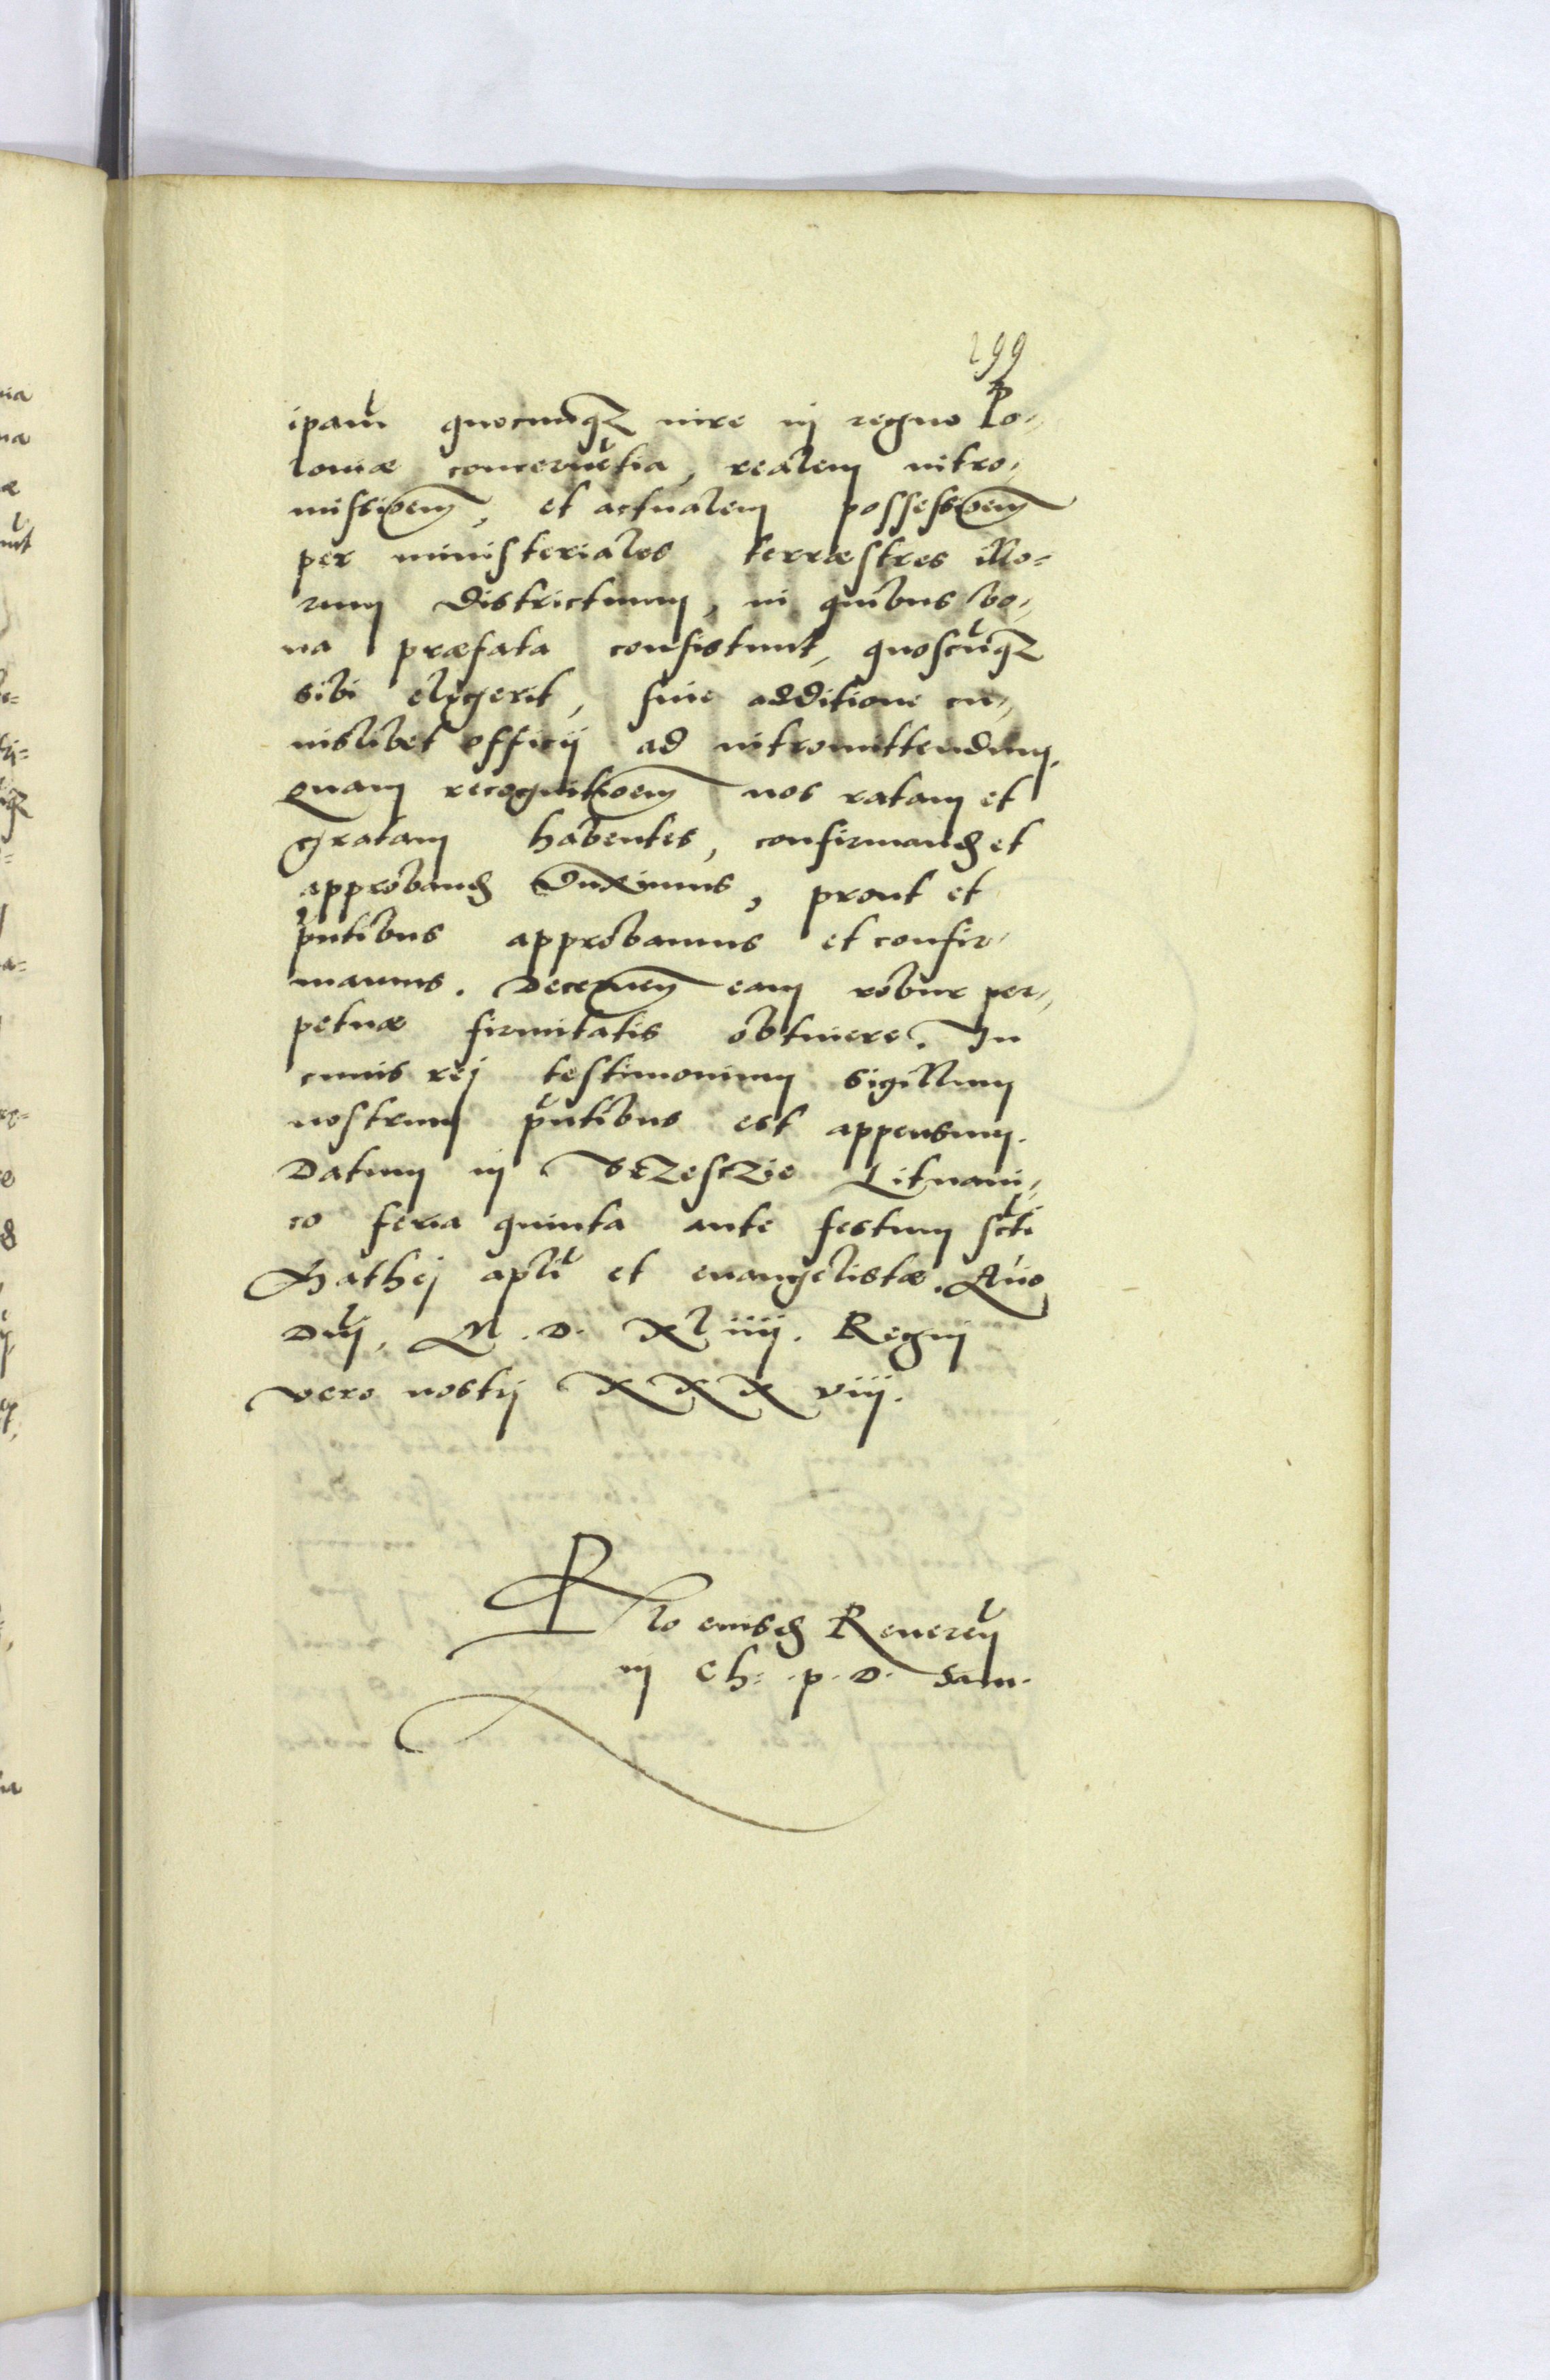 199
ipam̃ quocunqȝ iure in regno Po-
loniæ concernẽtia, realem intro-
missioem, et actualem possessioem
per ministeriales terræstres illo-
rum districtuum, in quibus bo-
na præfata consistunt, quoscũqȝ
sibi elegerit, sine additione cu-
iuslibet officij ad intromittendum.
Quam recognitioem nos ratam et
gratam habentes, confirmand et
approband duximus, prout et
p̃ntibus approbamus et confir-
mamus. Decernen eam robur per-
petuæ firmitatis obtinere. In
cuius rej testimonium sigillum
nostrum p̃ntibus est appensum.
Datum in Brzesczie Lituani-
co feria quinta ante festum scti
Mathej apli et euangelistæ. Año
Dñj, M. D. xliiij. Regnj
vero nostrj XXX viij.
Rlo eiusd Reueren
in Ch: . p. D. Sam.